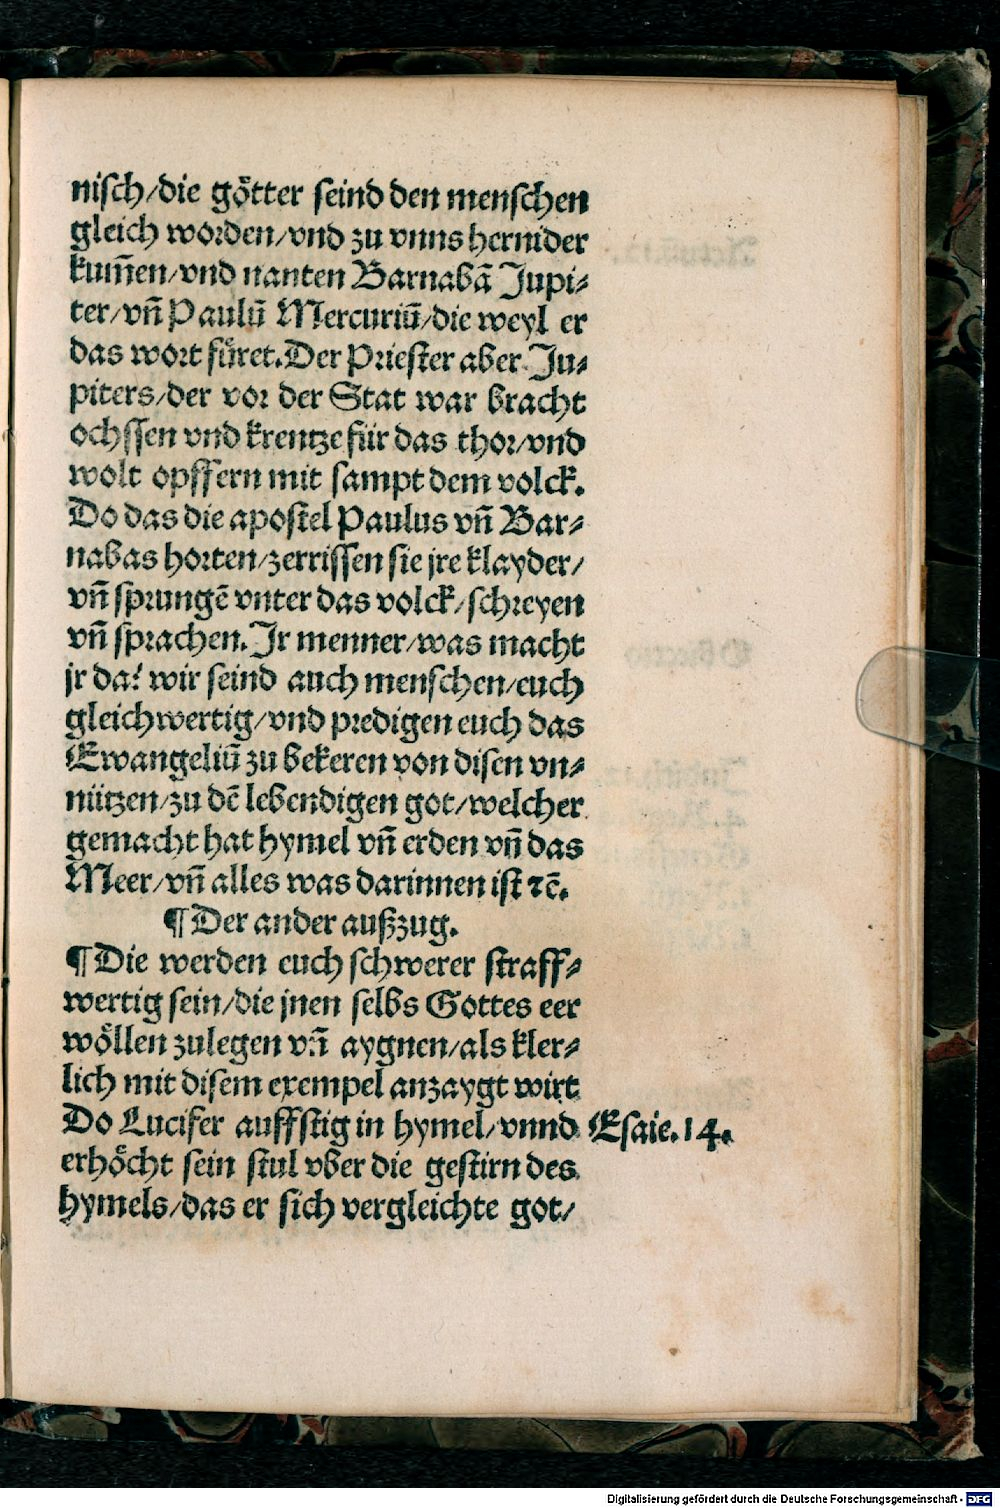 nisch/die götter seind den menschen
gleich worden/vnd zu vnns hernider
kum̄en/vnd nanten Barnabā Jupi-
ter/vn̄ Paulū Mercuriū/die weyl er
das wort füret. Der Priester aber Ju-
piters/der vor der Stat war bracht
ochssen vnd krentze für das thor/vnd
wolt opffern mit sampt dem volck.
Do das die apostel Paulus vn̄ Bar-
nabas horten/zerrissen sie jre klayder/
vn̄ sprungē vnter das volck/schreyen
vn̄ sprachen. Jr menner/was macht
jr da? wir seind auch menschen/euch
gleichwertig/vnd predigen euch das
Ewangeliū zu bekeren von disen vn-
nützen/zu dē lebendigen got/welcher
gemacht hat hymel vn̄ erden vn̄ das
Meer/vn̄ alles was darinnen ist ⁊c̄.
¶ Der ander außzug.
¶ Die werden euch schwerer straff-
wertig sein/die jnen selbs Gottes eer
wöllen zulegen vn̄ aygnen/als kler-
lich mit disem exempel anzaygt wirt
Do Lucifer auffstig in hymel/vnnd Esaie. 14.
erhöcht sein stul vber die gestirn des
hymels/das er sich vergleichte got/
Digitalisierung gefördert durch die Deutsche Forschungsgemeinschaft - DFG